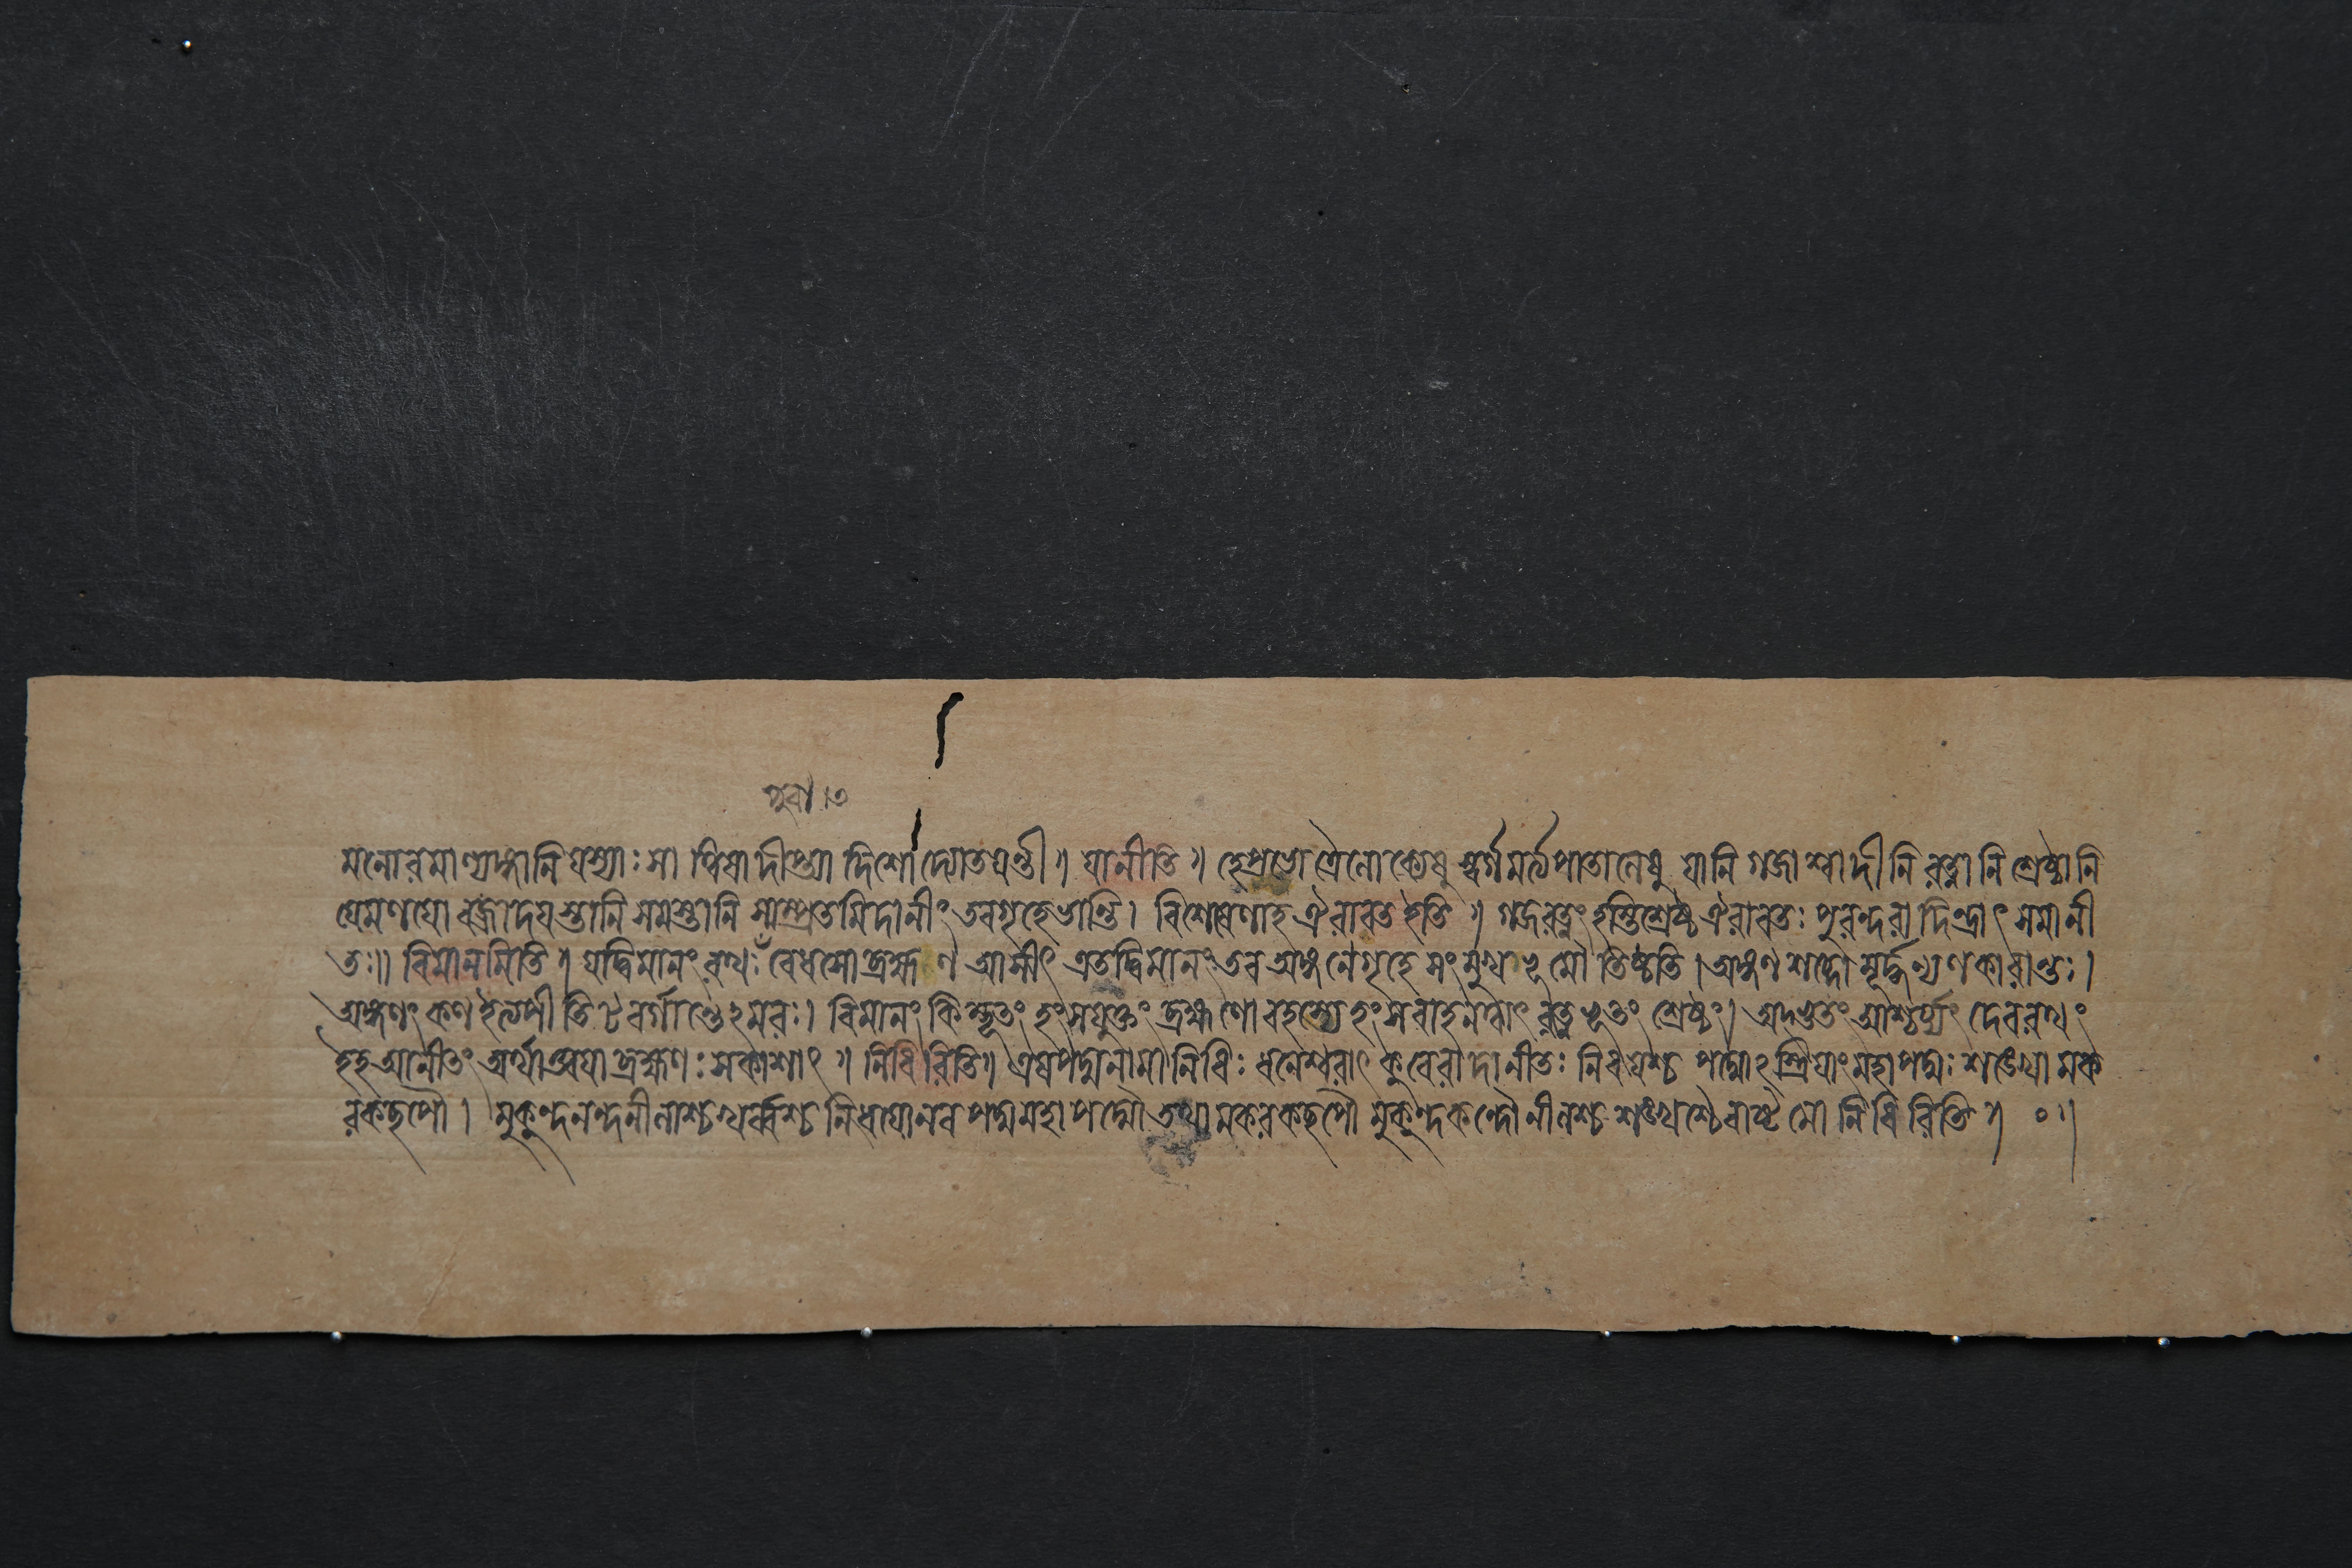 পুরা ৷ ৩
মনোরমাণ্যঙ্গানি যস্যাঃ সা ত্বিষা দীপ্ত্যা দিশো দ্যোতয়ন্তী ॥ যানীতি ॥ হে প্রভো ত্রৈলোক্যেষু স্বর্গমর্ত্যপাতালেষু যানি গজাশ্বাদীনি রত্নানি শ্রেষ্ঠানি
যে মণযো বজ্রাদযস্তানি সমস্তানি সাম্প্রতমিদানীং তব গৃহে ভান্তি ৷ বিশেষেণাহ ঐরাবত ইতি ॥ গজরত্নং হস্তিশ্রেষ্ঠ ঐরাবতঃ পুরন্দরাদিন্দ্রাৎ সমানী
তঃ॥ বিমানমিতি ॥ যদ্বিমানং রথঃ বেধসো ব্রহ্মণ আসীৎ এতদ্বিমানং তব অঙ্গনে গৃহে সংমুখভূমৌ তিষ্ঠতি ৷ অঙ্গণ শব্দো মূর্দ্ধন্যণকারান্তঃ ৷
অঙ্গণং কণ ইত্যপীতি টবর্গান্তেঽমরঃ ৷ বিমানং কিম্ভূতং হংসযুক্তং ব্রহ্মণো রহস্যে হংসবাহনত্বাৎ রত্নভূতং শ্রেষ্ঠং৷ অদ্ভুতং আশ্চর্য্যং দেবরথং
ইহ আনীতং অর্থাত্ত্বযা ব্রহ্মণঃ সকাশাৎ ॥ নিধিরিতি॥ এষ পদ্মনামা নিধিঃ ধনেশ্বরাৎ কুবেরাদানীতঃ নিধযশ্চ পদ্মোঽস্ত্রিযাং মহাপদ্মঃ শঙ্খো মক
রকছপৌ ৷ মুকুন্দনন্দনীলাশ্চ খর্ব্বশ্চ নিধযো নব পদ্মমহাপদ্মৌ তথা মকরকছপৌ মুকুন্দকন্দৌ নীলশ্চ শঙ্খশ্চৈবাষ্টমো নিধিরিতি ॥ ০ ॥